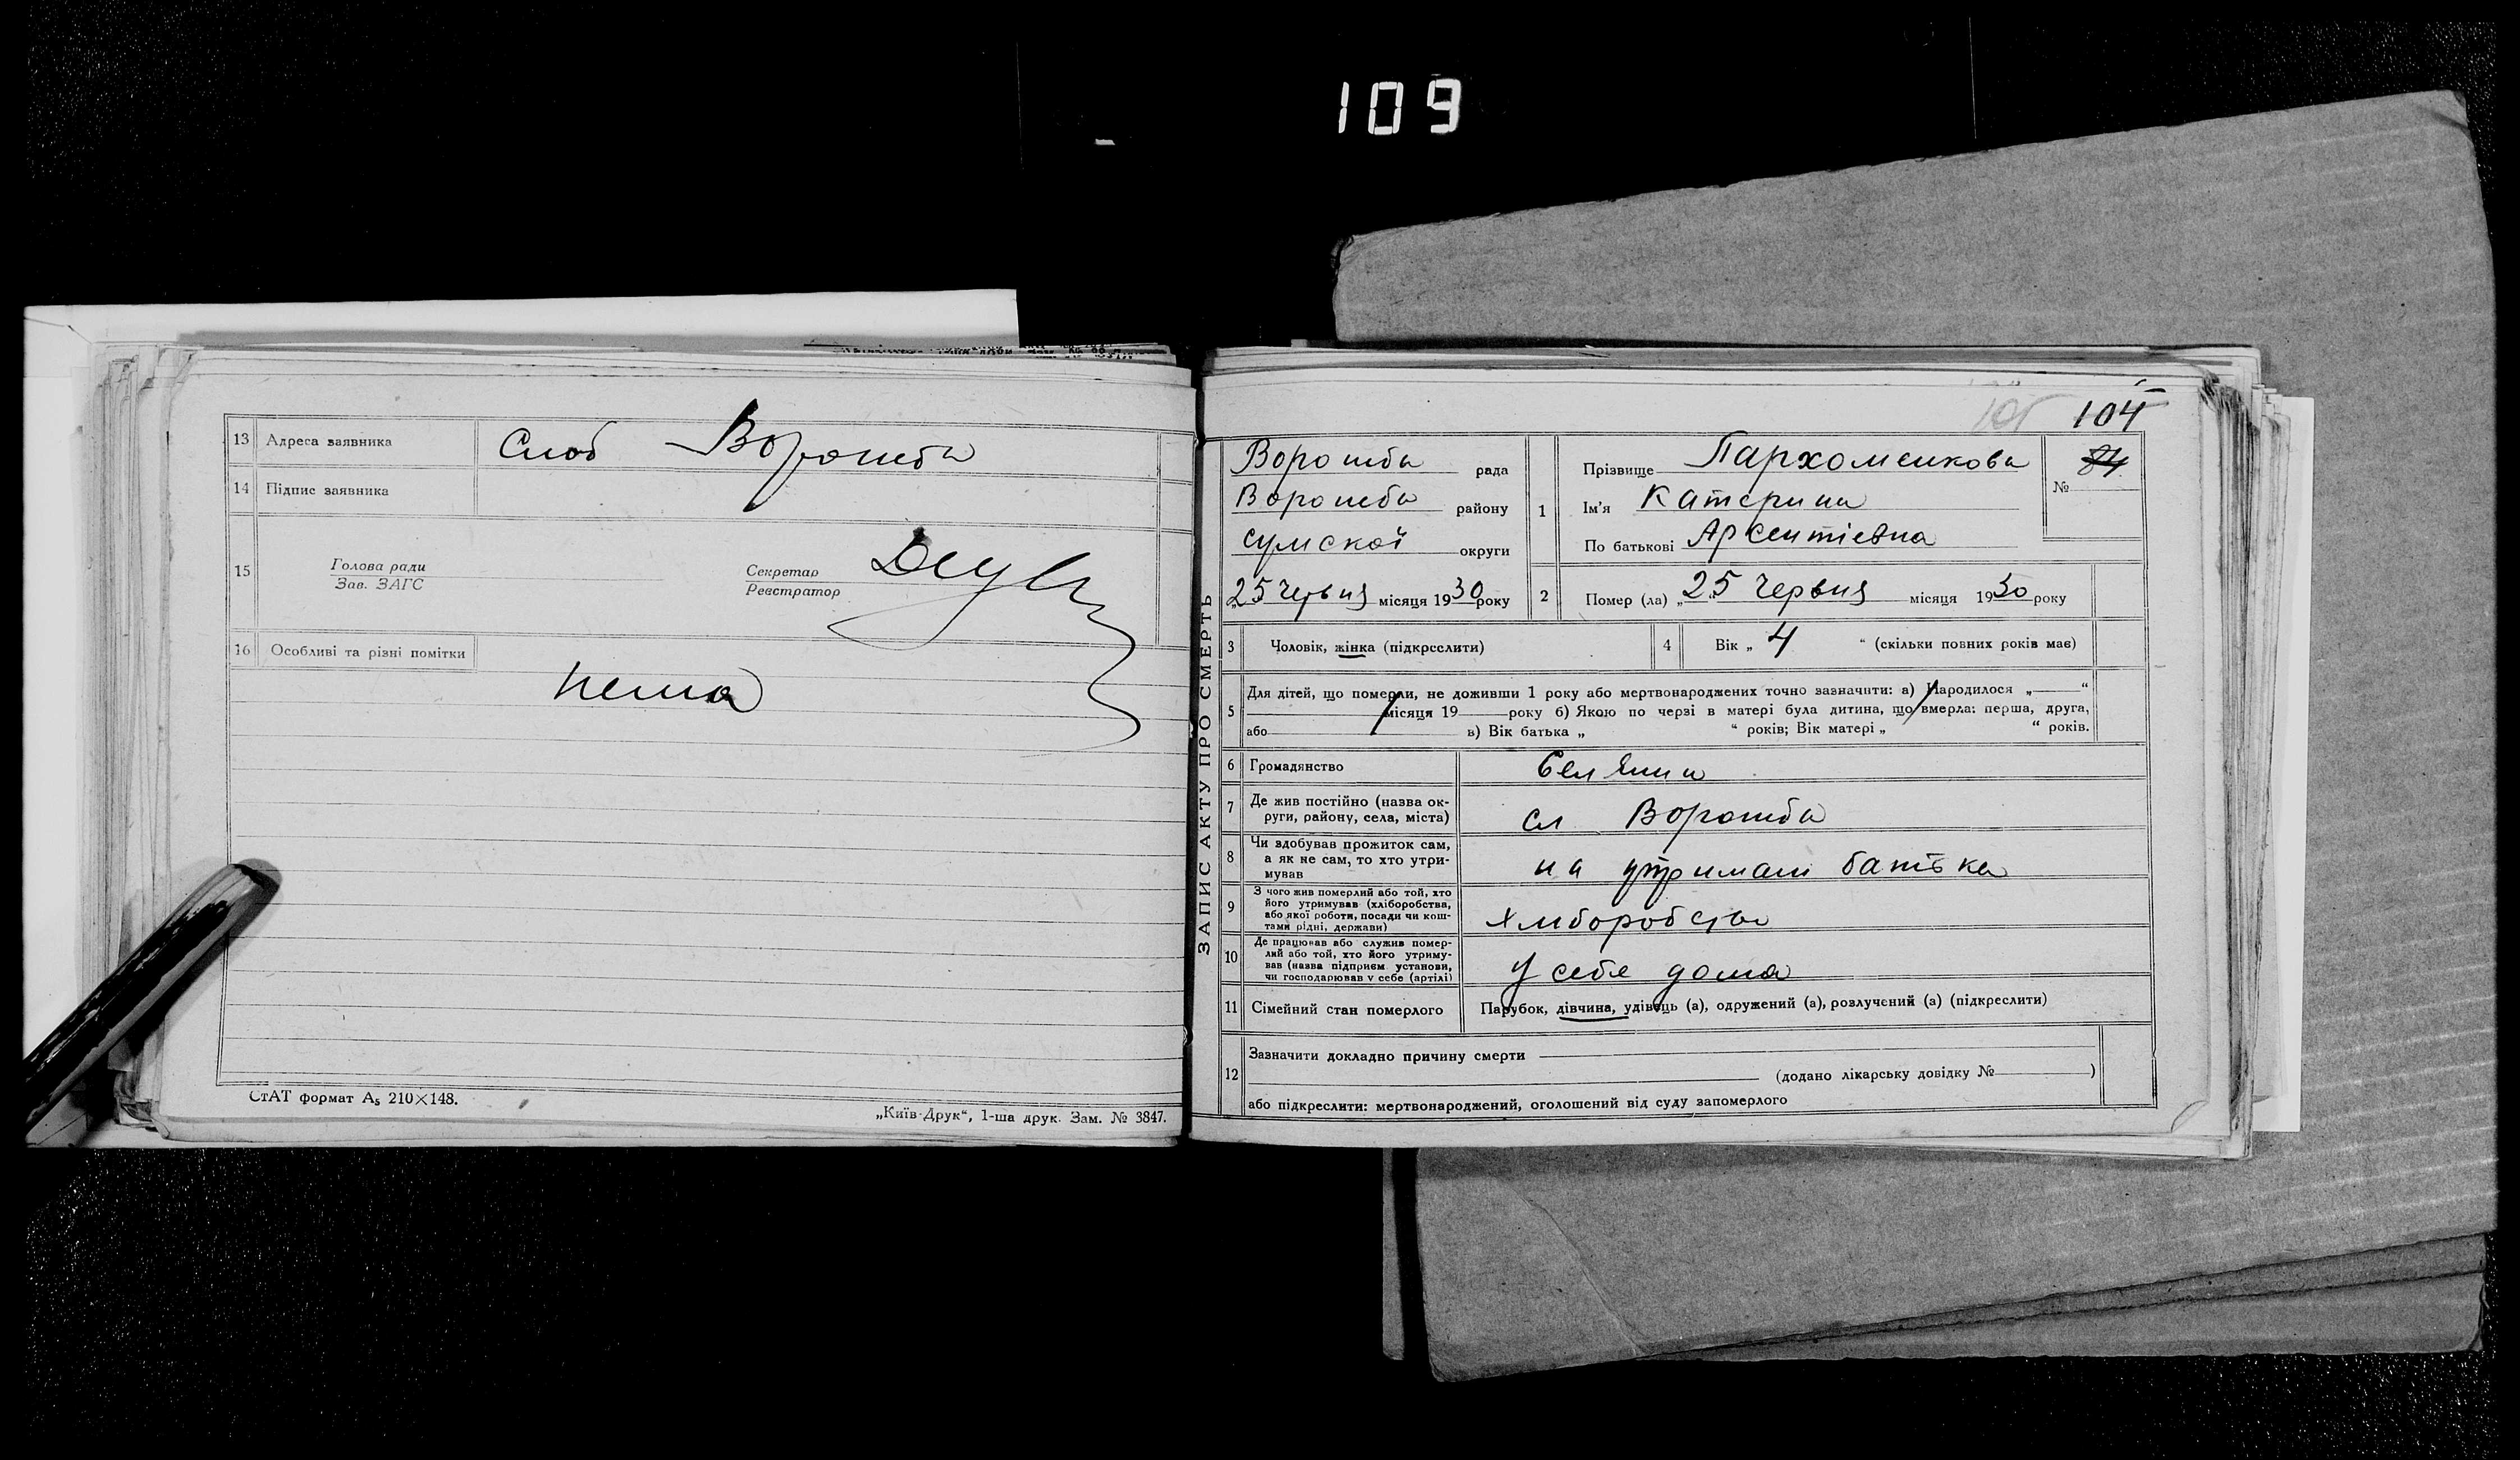 109
13 Адреса заявника Слоб Ворожба
14 Підпис заявника
15 Голова ради
Зав. ЗАГС
Секретар
Реєстратор
16 Особливі та різні помітки
нема
СтАТ формат А₅ 210×148.
„Київ-Друк“, 1-ша друк. Зам. № 3847.
104
ЗАПИС АКТУ ПРО СМЕРТЬ
Ворожба рада
Ворожба району
Сумской округи
„25 Червня місяця 1930 року
1 Прізвище Пархоменкова
Ім'я Катерина
По батькові Арсентієвна
№ 84
2 Помер (ла) „25“ Червня місяця 1930 року
3 Чоловік, жінка (підкреслити)
4 Вік „ 4 “ (скільки повних років має)
5 Для дітей, що померли, не доживши 1 року або мертвонароджених точно зазначити: а) Народилося „ “
місяця 19 року б) Якою по черзі в матері була дитина, що вмерла: перша, друга,
або в) Вік батька „ “ років; Вік матері „ “ років.
6 Громадянство Селянин
7 Де жив постійно (назва ок-
руги, району, села, міста) сл Ворожба
8 Чи здобував прожиток сам,
а як не сам, то хто утри-
мував на утримані батька
9 З чого жив померлий або той, хто
його утримував (хліборобства,
або якої роботи, посади чи кош-
тами рідні, держави) Хліборобства
10 Де працював або служив помер-
лий або той, хто його утриму-
вав (назва підприєм установи,
чи господарював у себе (артілі) У себе дома
11 Сімейний стан померлого Парубок, дівчина, удівець (а), одружений (а), розлучений (а) (підкреслити)
12 Зазначити докладно причину смерти
(додано лікарську довідку № )
або підкреслити: мертвонароджений, оголошений від суду запомерлого